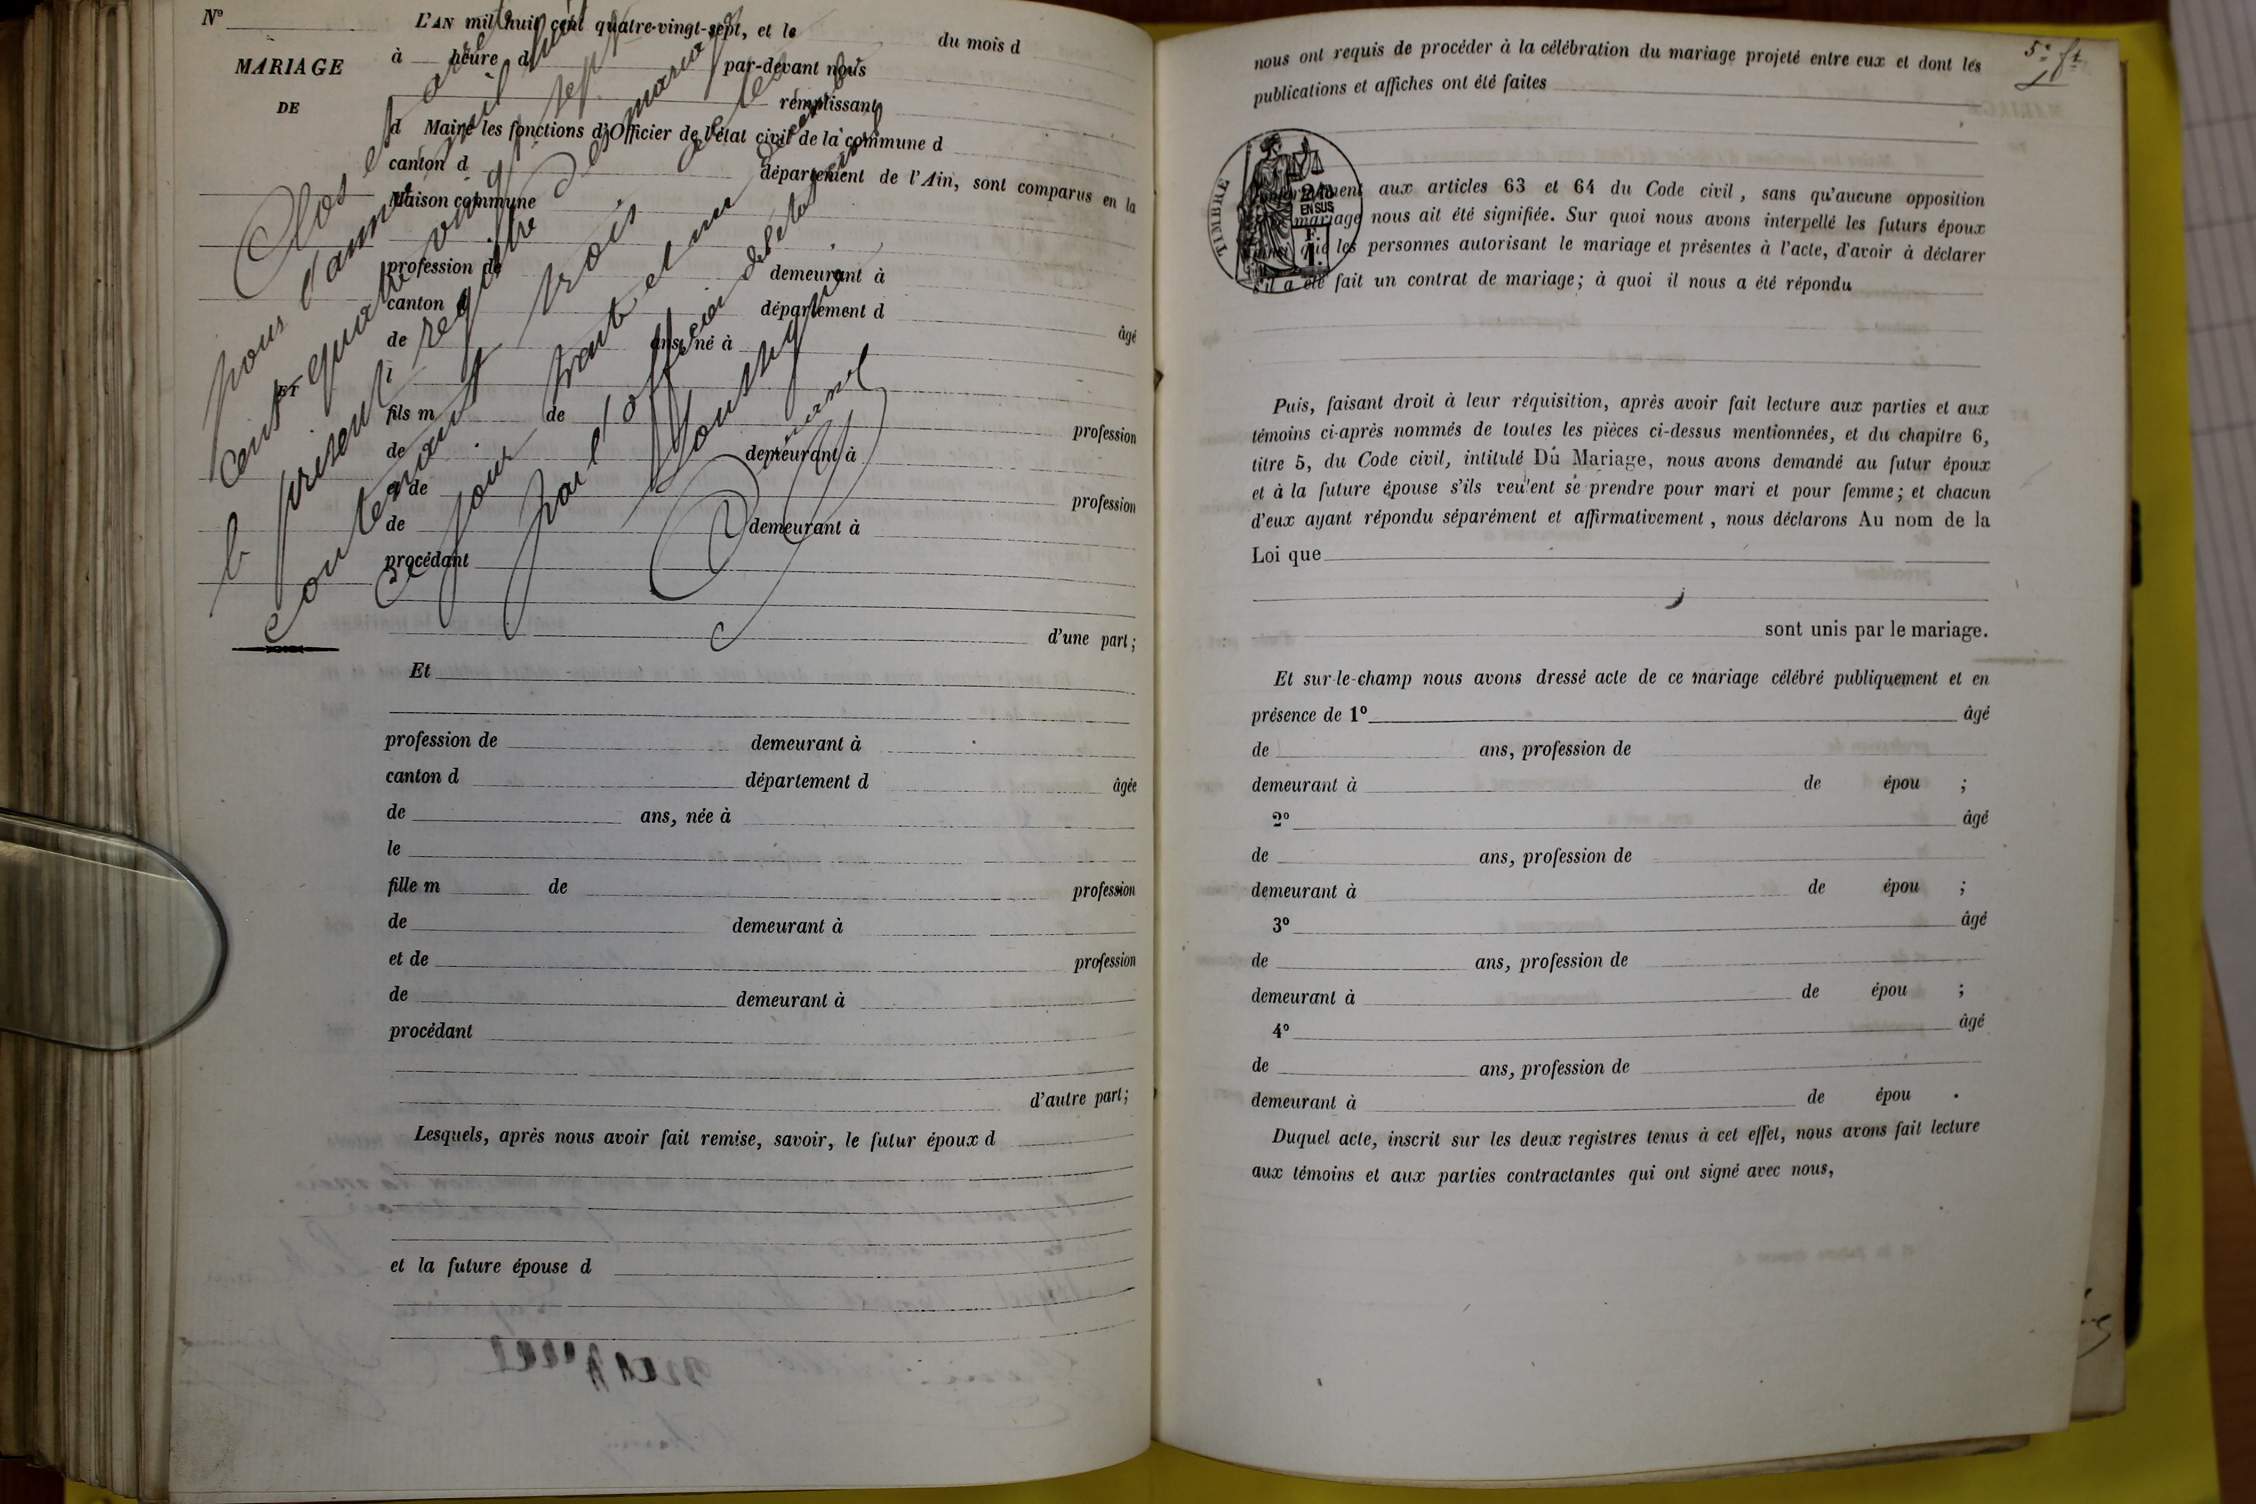 N°
MARIAGE
DE
ET
L'AN mil huit cent quatre-vingt-sept, et le du mois d
à heure d par-devant nous
remplissant
d Maire les fonctions d'Officier de l'état civil de la commune d
canton d département de l'Ain, sont comparus en la
Maison commune
profession de demeurant à
canton d département d âgé
de ans, né à
l
fils m de profession
de demeurant à
et de profession
de demeurant à
procédant
d'une part;
Clos et arrêté
pour l'année mil huit
cent quatre vingt sept
le présent registre des mariages
contenant trois actes
ce jour trente et un décembre
par l'officier de l'état civil
soussigné
Et
profession de demeurant à
canton d département d âgée
de ans, née à
le
fille m de profession
de demeurant à
et de profession
de demeurant à
procédant
d'autre part;
Lesquels, après nous avoir fait remise, savoir, le futur époux d
et la future épouse d
5e ft
nous ont requis de procéder à la célébration du mariage projeté entre eux et dont les
publications et affiches ont été faites
TIMBRE
2/10
EN SUS
F.
1.
aux articles 63 et 64 du Code civil, sans qu'aucune opposition
mariage nous ait été signifiée. Sur quoi nous avons interpellé les futurs époux
que les personnes autorisant le mariage et présentes à l'acte, d'avoir à déclarer
s'il a été fait un contrat de mariage; à quoi il nous a été répondu
Puis, faisant droit à leur réquisition, après avoir fait lecture aux parties et aux
témoins ci-après nommés de toutes les pièces ci-dessus mentionnées, et du chapitre 6,
titre 5, du Code civil, intitulé Du Mariage, nous avons demandé au futur époux
et à la future épouse s'ils veulent se prendre pour mari et pour femme; et chacun
d'eux ayant répondu séparément et affirmativement, nous déclarons Au nom de la
Loi que
sont unis par le mariage.
Et sur-le-champ nous avons dressé acte de ce mariage célébré publiquement et en
présence de 1° âgé
de ans, profession de
demeurant à de épou ;
2° âgé
de ans, profession de
demeurant à de épou ;
3° âgé
de ans, profession de
demeurant à de épou ;
4° âgé
de ans, profession de
demeurant à de épou .
Duquel acte, inscrit sur les deux registres tenus à cet effet, nous avons fait lecture
aux témoins et aux parties contractantes qui ont signé avec nous,